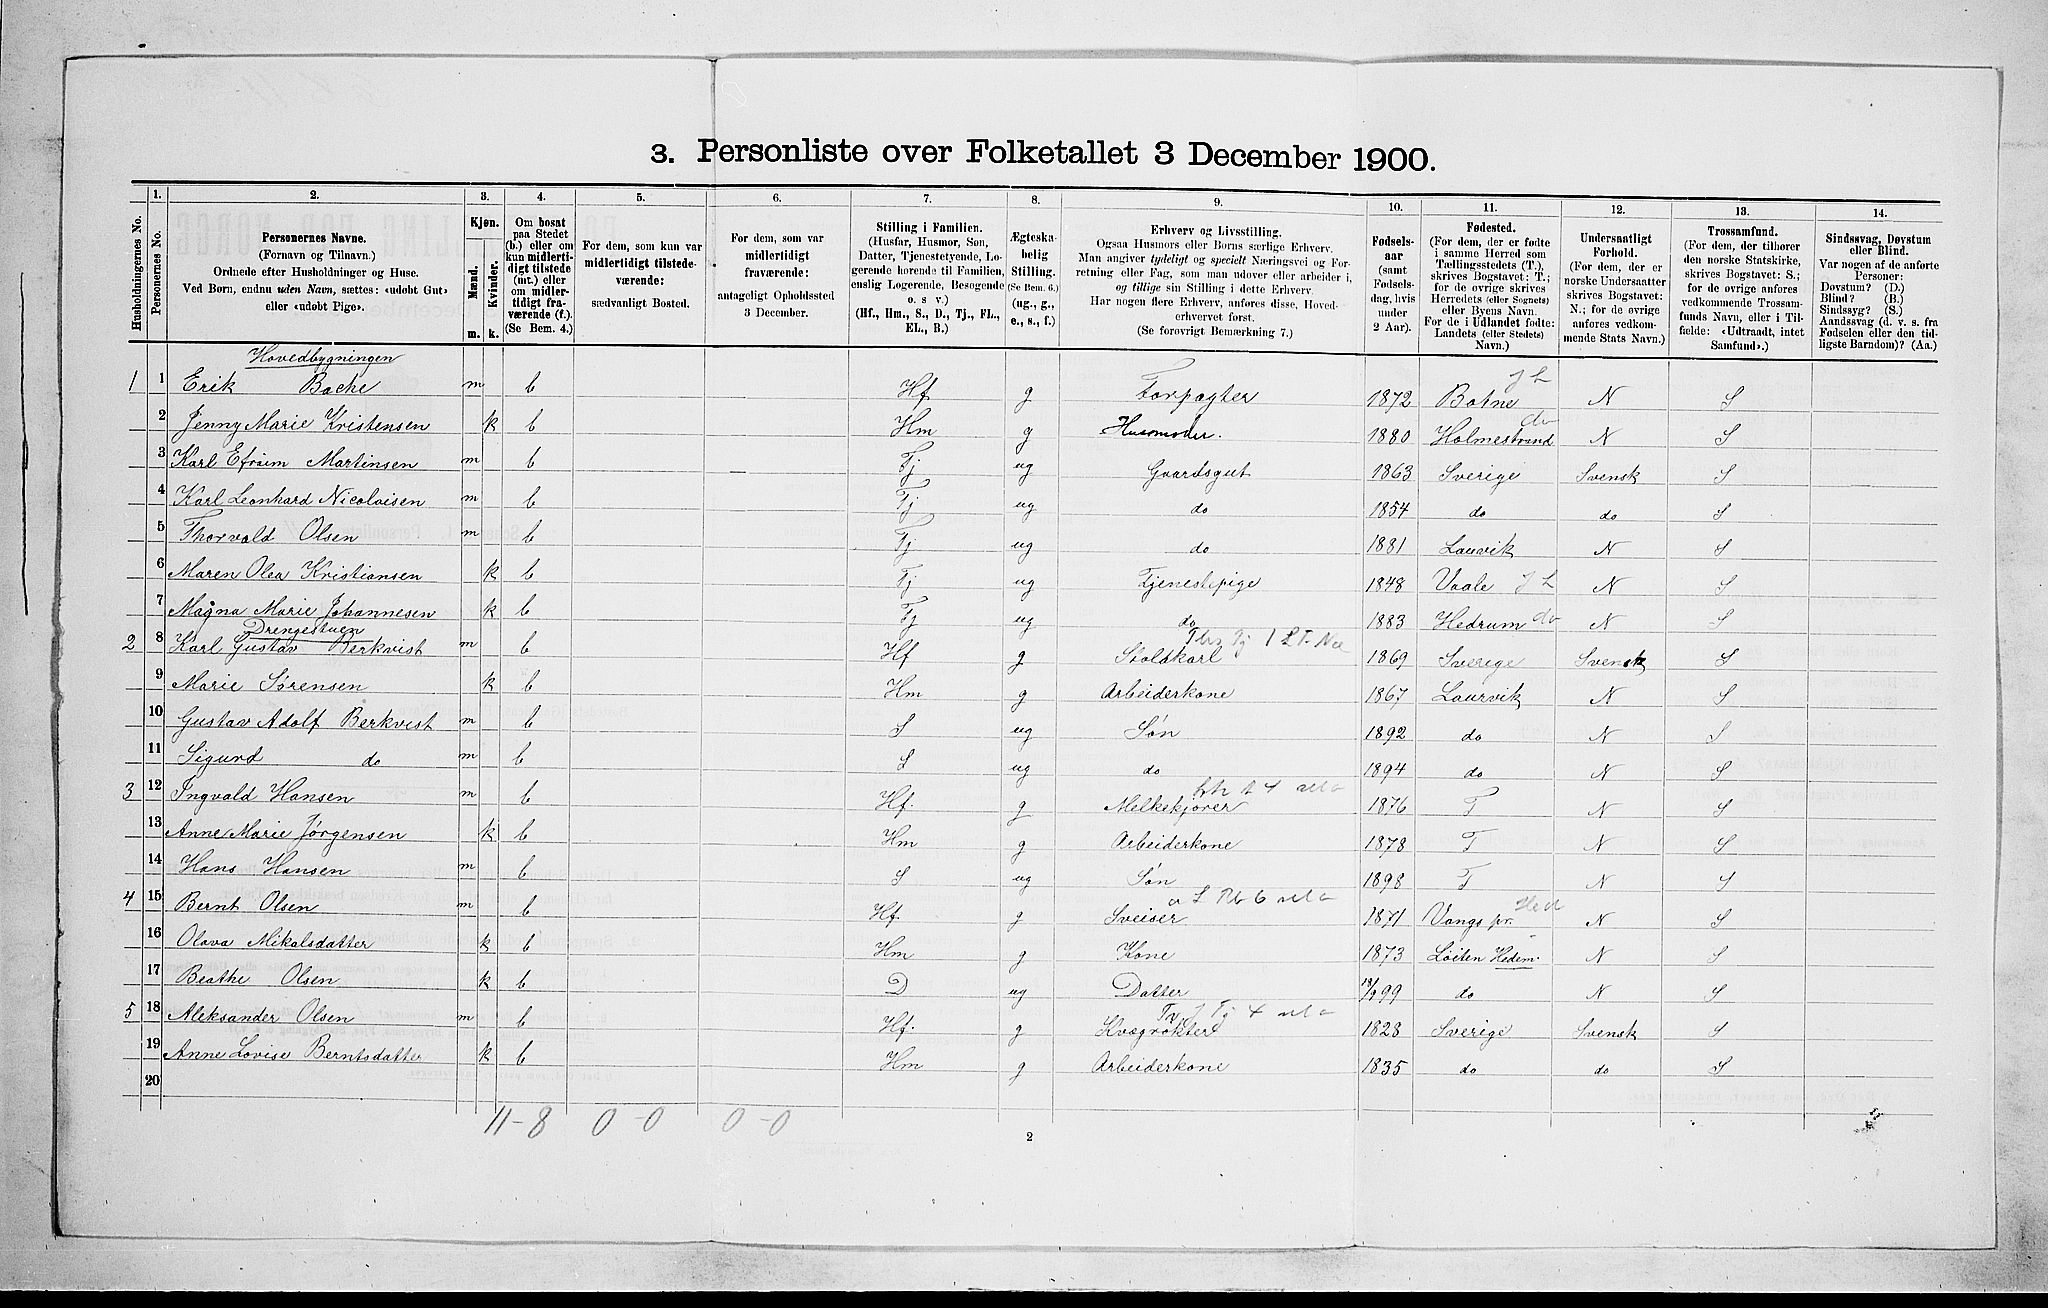 3. Personliste over Folketallet 3 December 1900.
1. 2. 3. 4. 5. 6. 7. 8. 9. 10. 11. 12. 13. 14.
Husholdningernes No.
Personernes No.
Personernes Navne.
(Fornavn og Tilnavn.)
Ordnede efter Husholdninger og Huse.
Ved Børn, endnu uden Navn, sættes: «udøbt Gut»
eller «udøbt Pige».
Kjøn.
Mænd.
Kvinder.
m. k.
Om bosat
paa Stedet
(b.) eller om
kun midlerti-
digt tilstede
(mt.) eller
om midler-
tidigt fra-
værende (f.).
(Se Bem. 4.)
For dem, som kun var
midlertidigt tilstede-
værende:
sædvanligt Bosted.
For dem, som var
midlertidigt
fraværende:
antageligt Opholdssted
3 December.
Stilling i Familien.
(Husfar, Husmor, Søn,
Datter, Tjenestetyende, Lo-
gerende hørende til Familien,
enslig Logerende, Besøgende
o. s v.)
(Hf., Hm., S., D., Tj., FL.,
EL., B.)
Ægteska-
belig
Stilling.
(Se Bem. 6.)
(ug., g.,
e., s., f.)
Erhverv og Livsstilling.
Ogsaa Husmors eller Børns særlige Erhverv.
Man angiver tydeligt og specielt Næringsvei og For-
retning eller Fag, som man udøver eller arbeider i,
og tillige sin Stilling i dette Erhverv.
Har nogen flere Erhverv, anføres disse, Hoved-
erhvervet først.
(Se forøvrigt Bemærkning 7.)
Fødsels-
aar
(samt
Fødsels-
dag, hvis
under
2 Aar).
Fødested.
(For dem, der er fødte
i samme Herred som
Tællingsstedets (T.),
skrives Bogstavet: T.;
for de øvrige skrives
Herredets (eller Sognets)
eller Byens Navn.
For de i Udlandet fødte:
Landets (eller Stedets)
Navn.)
Undersaatligt
Forhold.
(For dem, der er
norske Undersaatter
skrives Bogstavet:
N.; for de øvrige
anføres vedkom-
mende Stats Navn.)
Trossamfund.
(For dem, der tilhører
den norske Statskirke,
skrives Bogstavet: S.;
for de øvrige anføres
vedkommende Trossam-
funds Navn, eller i Til-
fælde: «Udtraadt, intet
Samfund».)
Sindssvag, Døvstum
eller Blind.
Var nogen af de anførte
Personer:
Døvstum? (D.)
Blind? (B.)
Sindssyg? (S.)
Aandssvag (d. v. s. fra
Fødselen eller den tid-
ligste Barndom)? (Aa.)
Hovedbygningen
1 1 Erik Bache m b Hf g Forpagter 1872 Botne J L N S
2 Jenny Marie Kristensen k b Hm g Husmoder. 1880 Holmestrand do N S
3 Karl Efraim Martinsen m b Tj ug Gaardsgut 1863 Sverige Svensk S
4 Karl Leonhard Nicolaisen m b Tj ug do 1854 do do S
5 Thorvald Olsen m b Tj ug do 1881 Laurvik N S
6 Maren Olea Kristiansen k b Tj ug Tjenestepige 1848 Vaale J L N S
7 Magna Marie Johannesen k b Tj ug do 1883 Hedrum do N S
Drengestuen
2 8 Karl Gustav Berkvist m b Hf g Staldkarl 1869 Sverige Svensk S
9 Marie Sørensen k b Hm g Arbeiderkone 1867 Laurvik N S
10 Gustav Adolf Berkvist m b S ug Søn 1892 do N S
11 Sigurd do m b S ug do 1894 do N S
3 12 Ingvald Hansen m b Hf. g Melkekjører 1876 T N S
13 Anne Marie Jørgensen k b Hm g Arbeiderkone 1878 T N S
14 Hans Hansen m b S ug Søn 1898 T N S
4 15 Bernt Olsen m b Hf. g Sveiser 1871 Vangs pr. Hed N S
16 Olava Mikalsdatter k b Hm g Kone 1873 Løiten Hedem. N S
17 Beathe Olsen k b D ug Datter 99 do N S
5 18 Aleksander Olsen m b Hf. g Kvægrøkter 1828 Sverige Svensk S
19 Anne Lovise Berntsdatter k b Hm g Arbeiderkone 1835 do do S
20
11-8 0-0 0-0
2